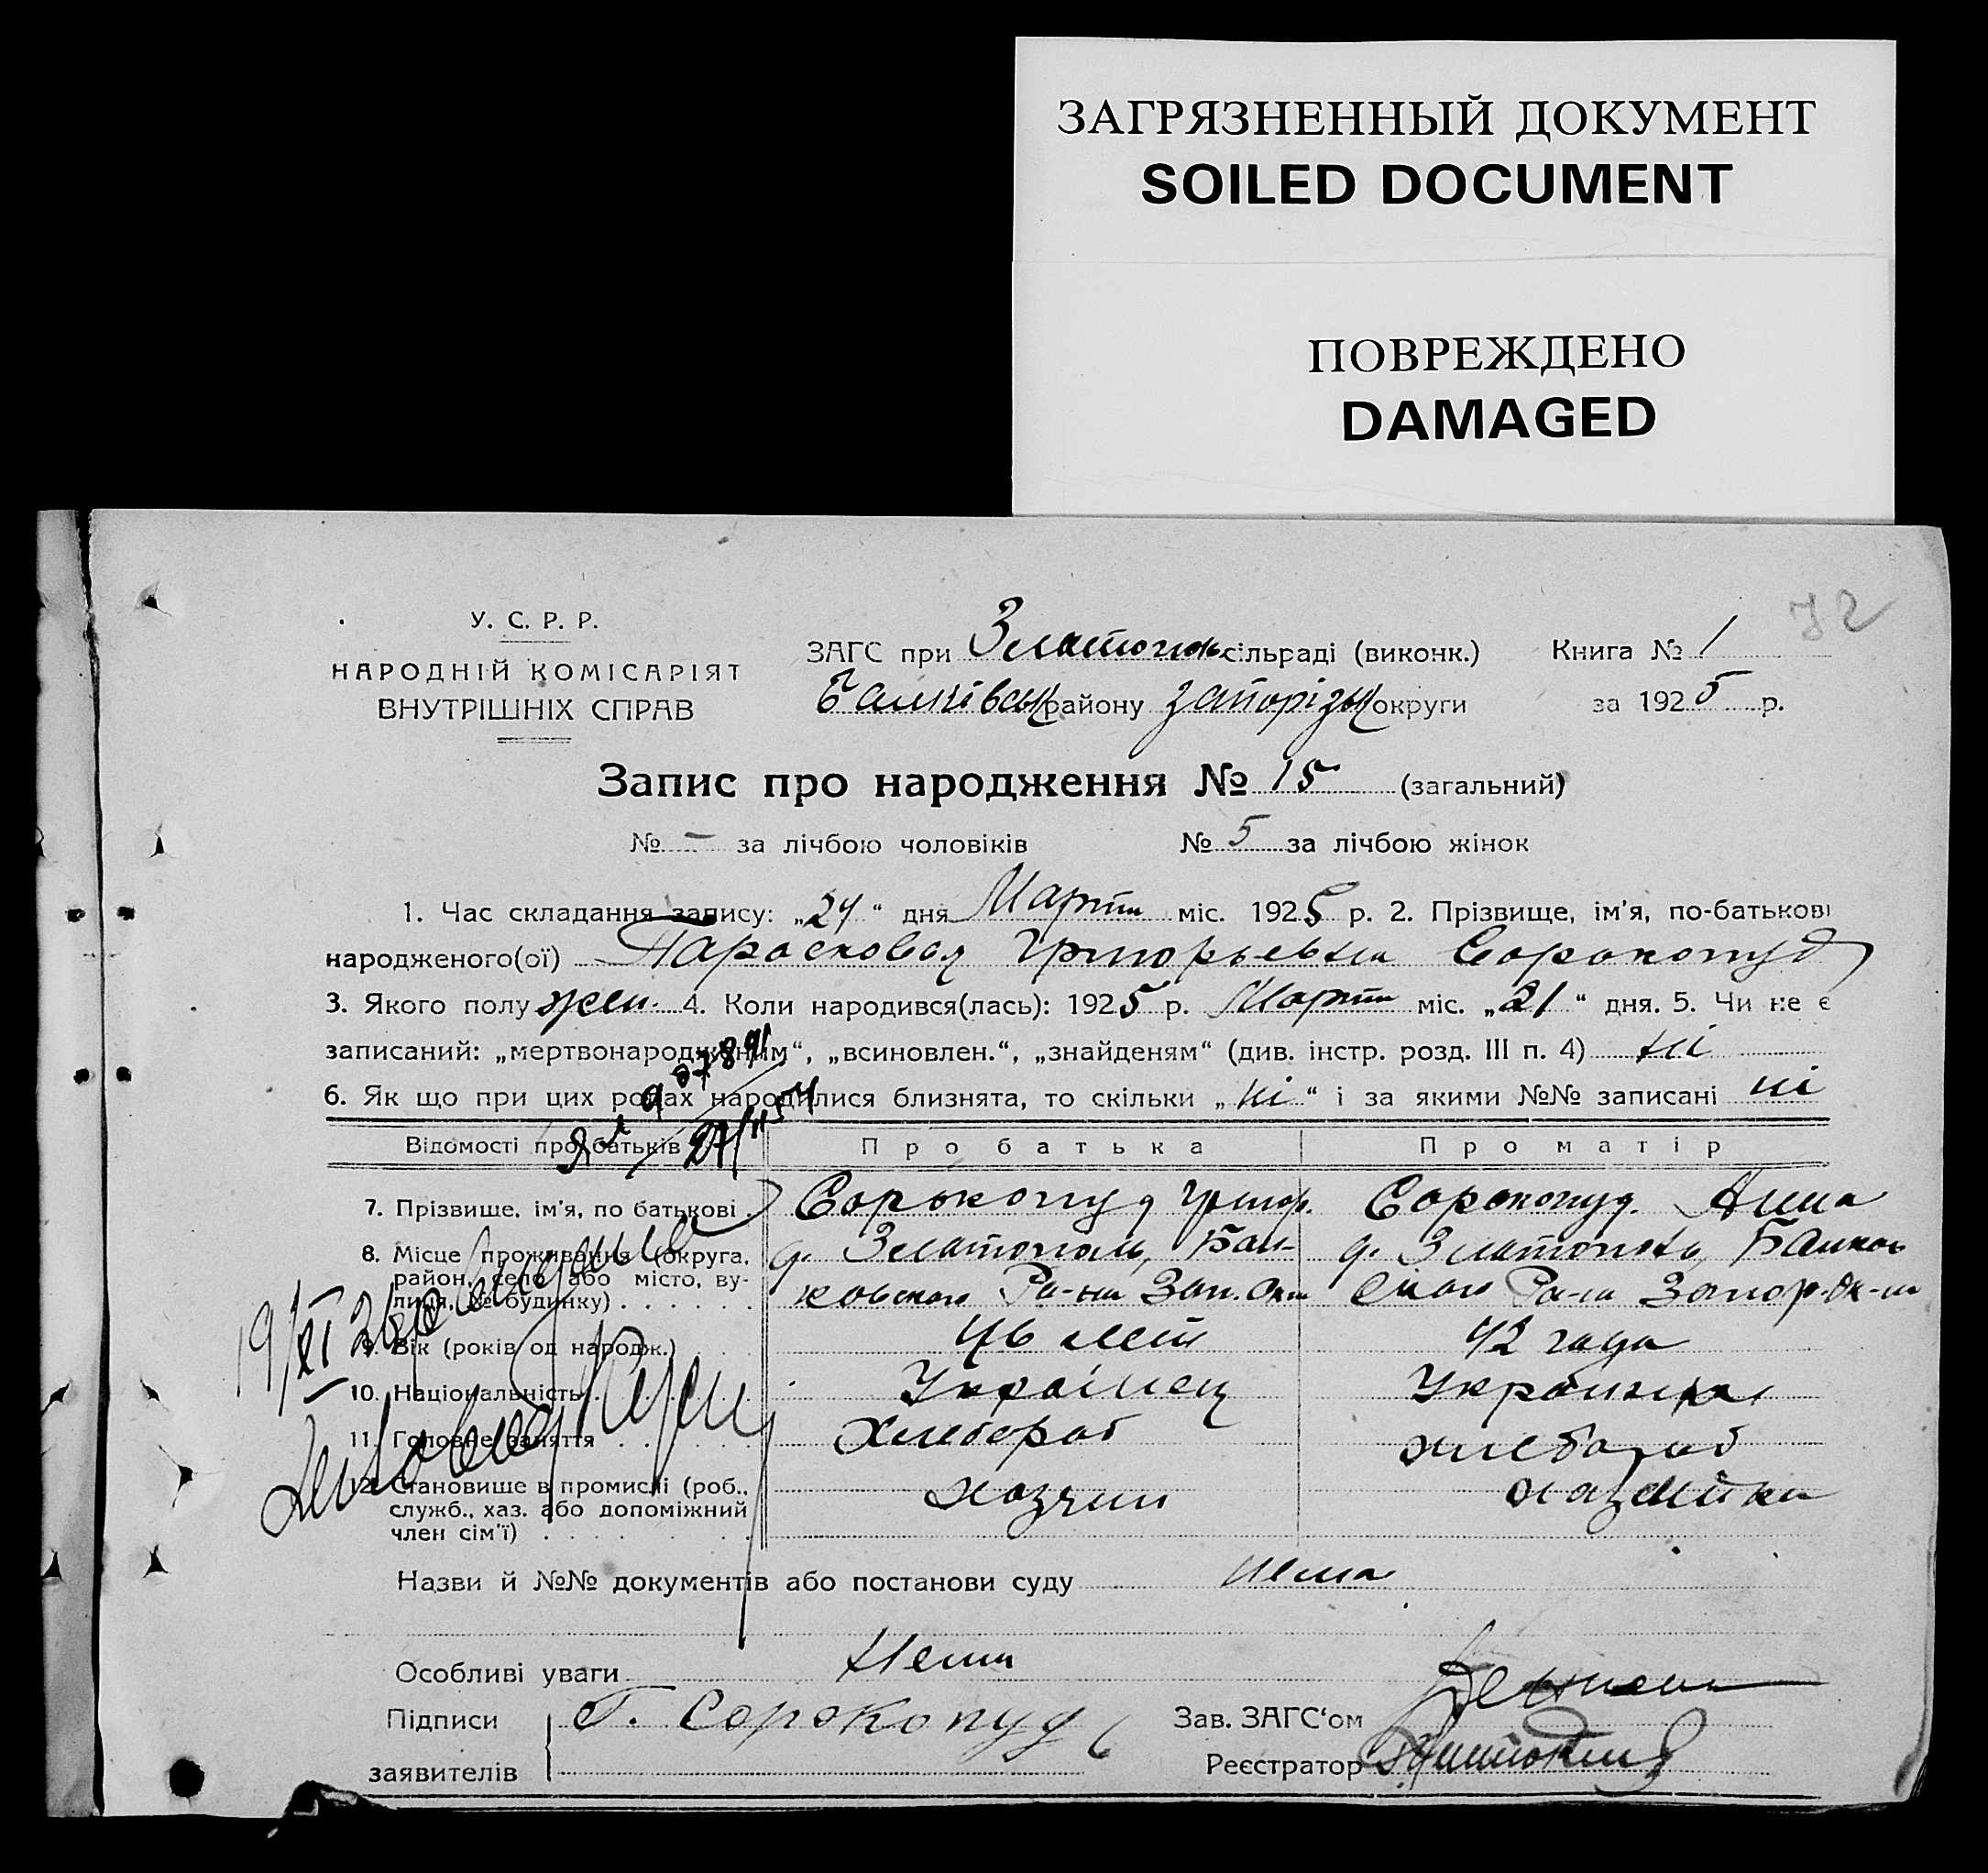 ЗАГРЯЗНЕННЫЙ ДОКУМЕНТ
SOILED DOCUMENT
ПОВРЕЖДЕНО
DAMAGED
72
У. С. Р. Р.
НАРОДНІЙ КОМІСАРІЯТ
ВНУТРІШНІХ СПРАВ
ЗАГС при Златопольсільраді (виконк.) Книга № 1
Балківськ району Запорізьк округи за 1925 р.
Запис про народження № 15 (загальний)
№ – за лічбою чоловіків № 5 за лічбою жінок
1. Час складання запису: „24“ дня Марта міс. 1925 р. 2. Прізвище, ім'я, по-батькові
народженого(ої) Парасковея Григорьевна Сорокопуд
3. Якого полу жен. 4. Коли народився(лась): 1925 р. Марта міс. „21“ дня. 5. Чи не є
записаний: „мертвонародженим“, „всиновлен.“, „знайденям“ (див. інстр. розд. III п. 4) ні
6. Як що при цих родах народилися близнята, то скільки „ні“ і за якими №№ записані ні
Відомості про батьків Про батька Про матір
7. Прізвище, ім'я, по батькові . Сорокопуд Григор. Сорокопуд. Анна
8. Місце проживання (округа, д. Златополь, Бал- д. Златополь, Балков
район, село або місто, ву- ковского Ра-на Зап. Окр ского Ра-на Запор. Ок-ги
лиця, № будинку) . . . . . .
9. Вік (років од народж.) 46 лет 42 года
10. Національність Украінец Украинка
11. Головне заняття Хлебороб хлебороб
12. Становище в промислі (роб., хозяин
служб., хаз. або допоміжний
член сім'ї)
Назви й №№ документів або постанови суду нема
Особливі уваги Нема
Підписи Г. Сорокопуд Зав. ЗАГС'ом
заявителів Реєстратор